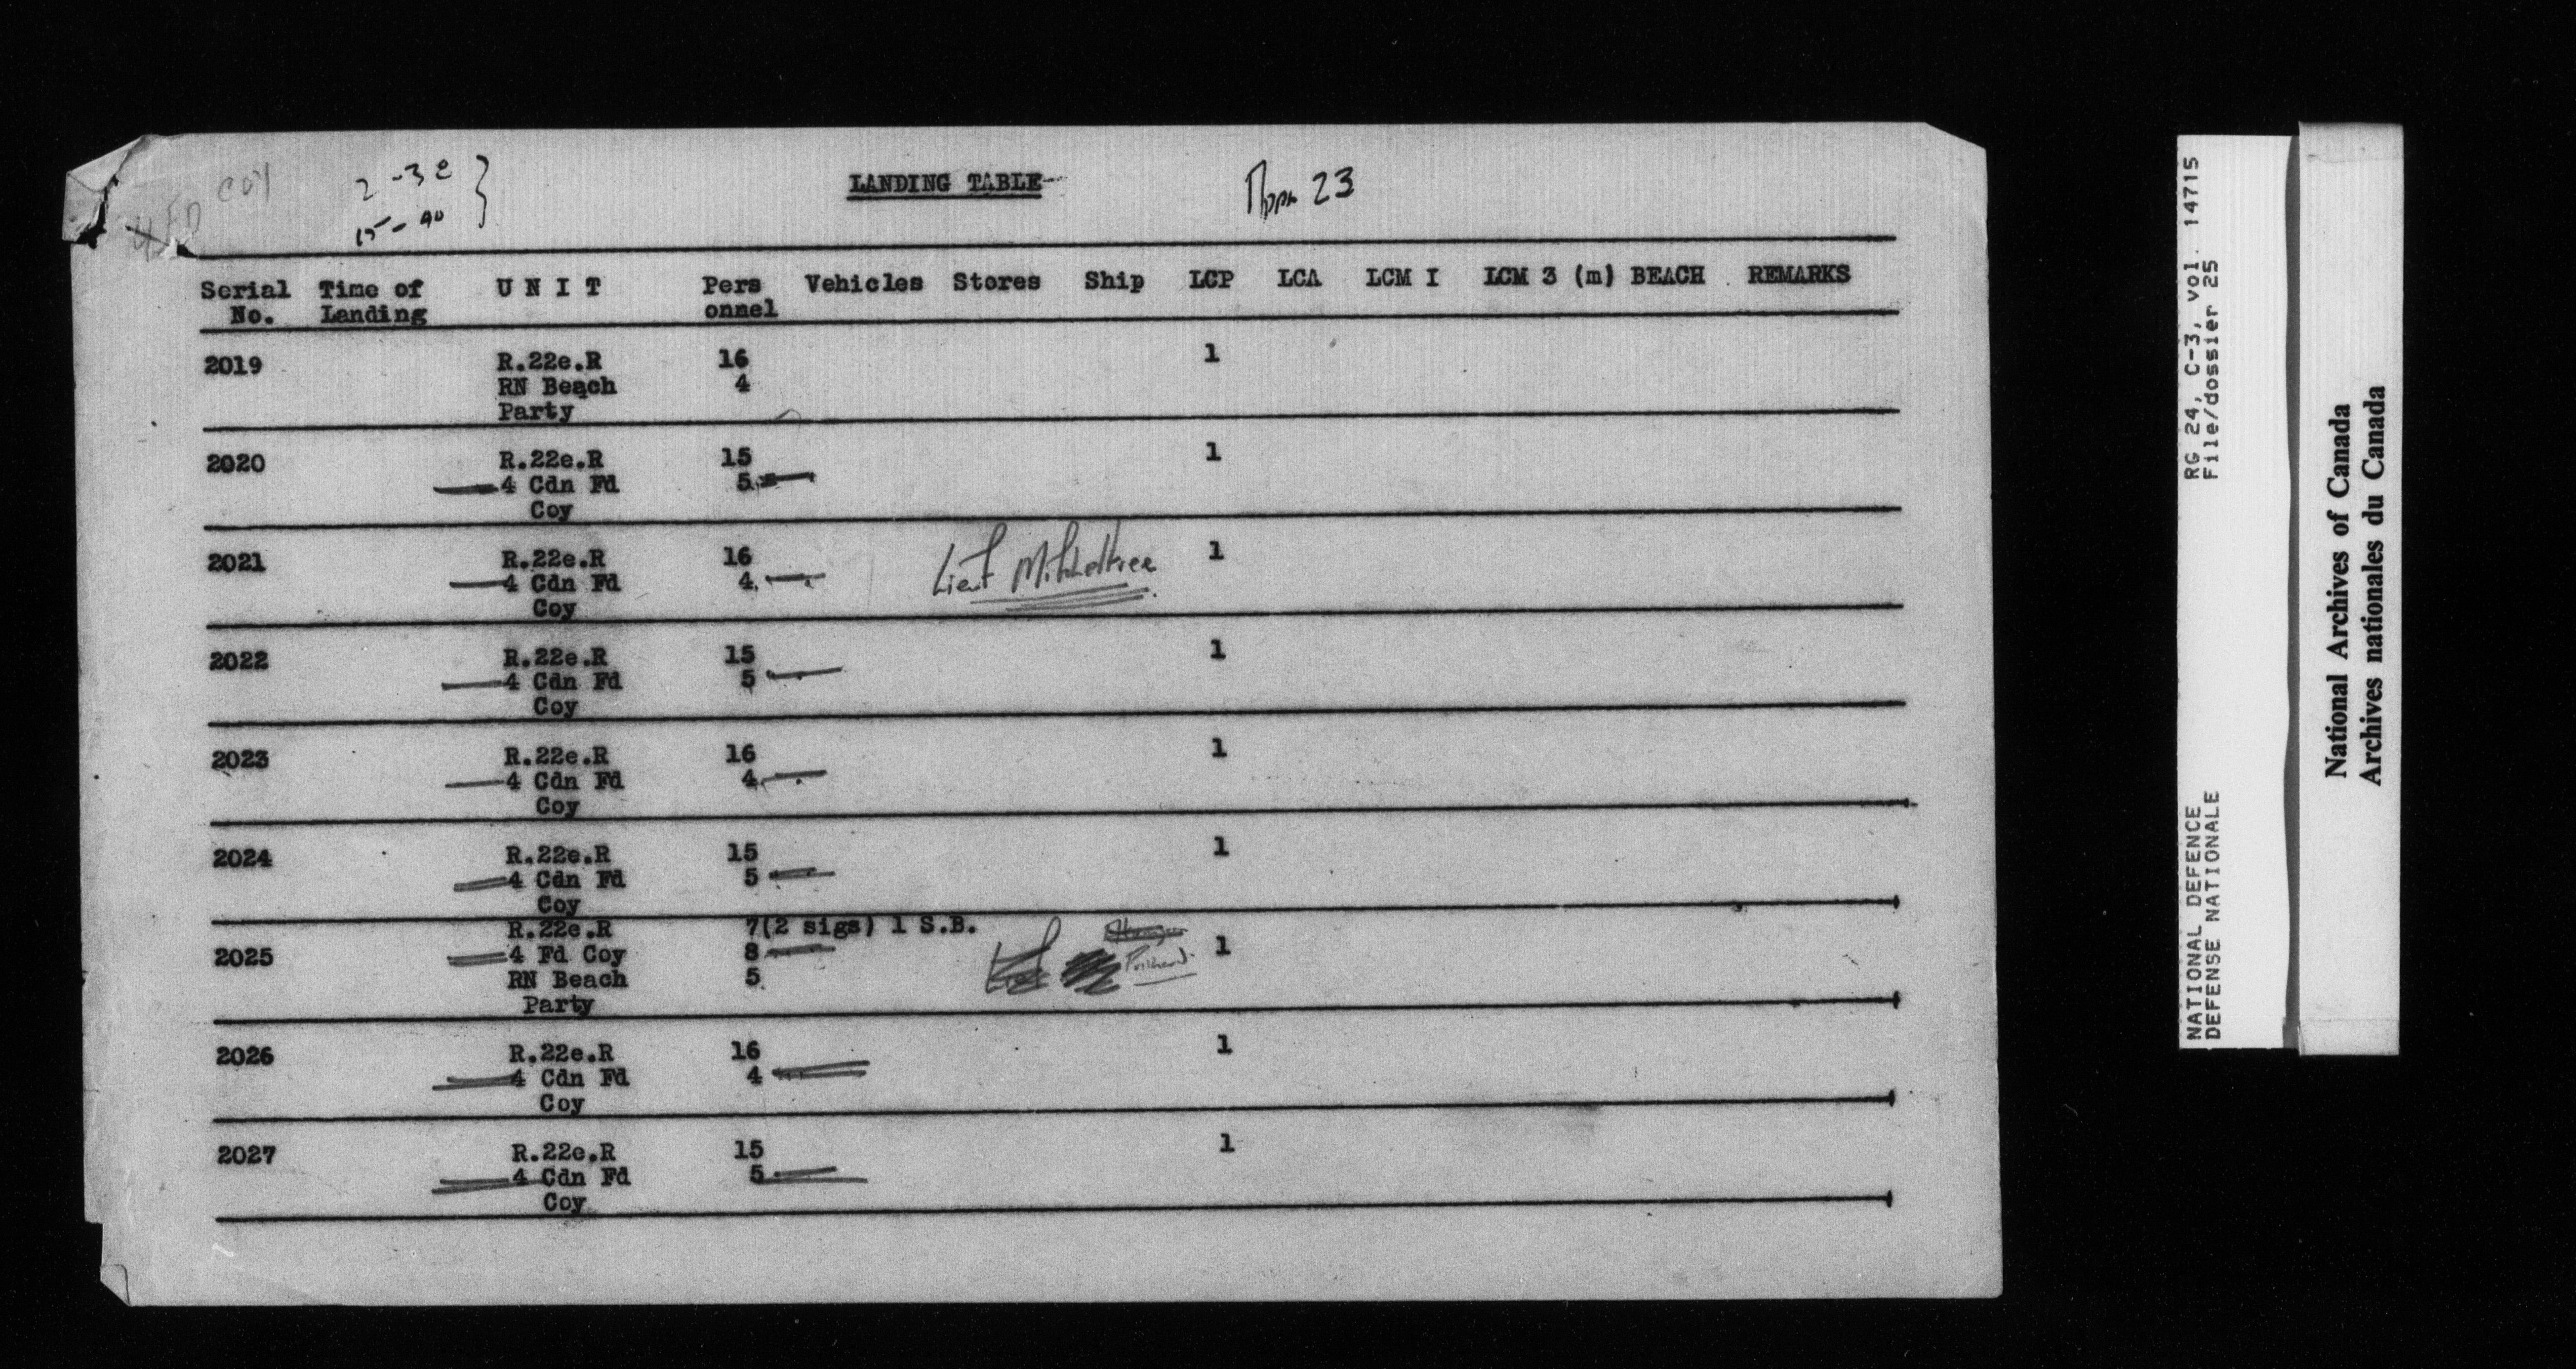 COY
4 FD
2 - 32 }
15 - 40
LANDING TABLE
Appx 23
Serial No. Time of Landing U N I T Pers onnel Vehicles Stores Ship LCP LCA LCM I LCM 3 (m) BEACH REMARKS
2019 R.22e.R 16 1
RN Beach 4
Party
2020 R.22e.R 15 1
4 Cdn Fd 5
Coy
2021 R.22e.R 16 Lieut Mitcheltree 1
4 Cdn Fd 4
Coy
2022 R.22e.R 15 1
4 Cdn Fd 5
Coy
2023 R.22e.R 16 1
4 Cdn Fd 4
Coy
2024 R.22e.R 15 1
4 Cdn Fd 5
Coy
R.22e.R 7(2 sigs) 1 S.B.
2025 4 Fd Coy 8 1
RN Beach 5
Party
2026 R.22e.R 16 1
4 Cdn Fd 4
Coy
2027 R.22e.R 15 1
4 Cdn Fd 5
Coy
NATIONAL DEFENCE RG 24, C-3, vol. 14715
DEFENSE NATIONALE File/dossier 25
National Archives of Canada
Archives nationales du Canada